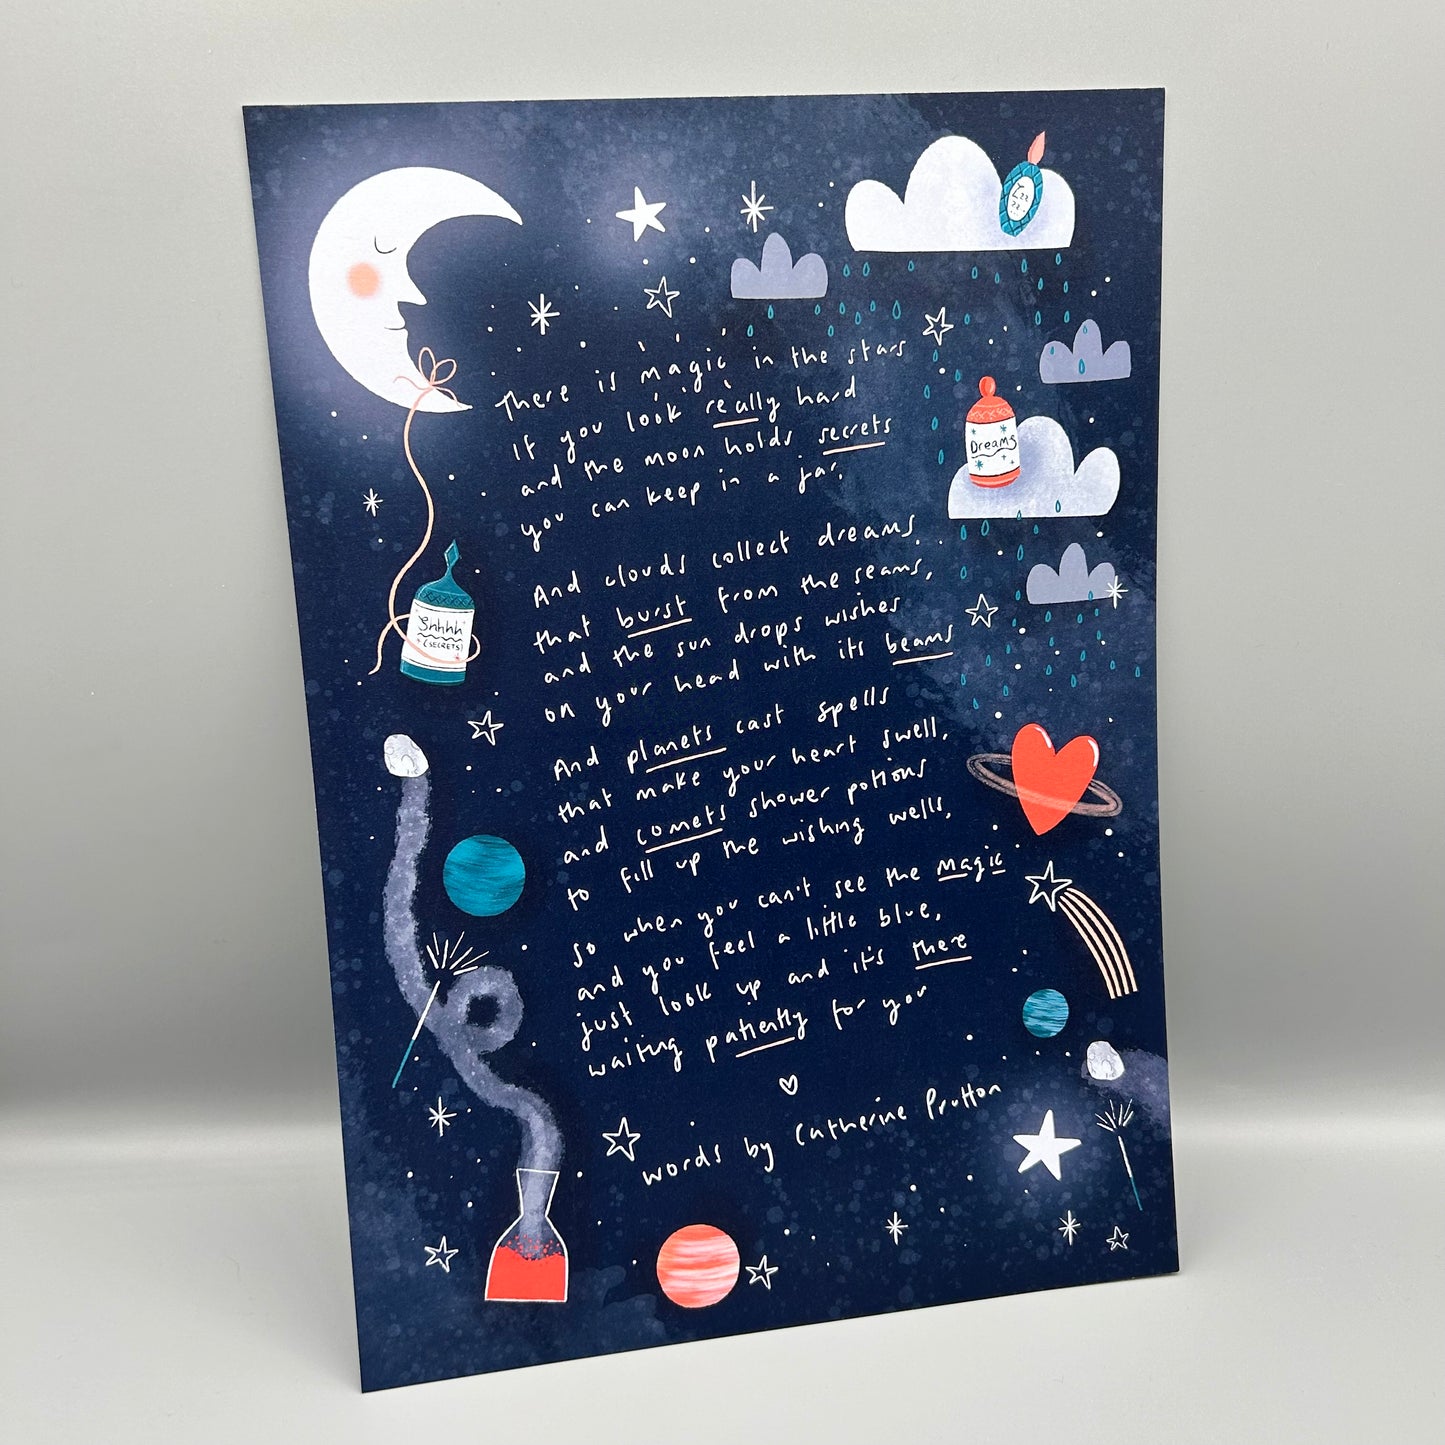 There is magic in the stars
If you look really hard
and the moon holds secrets
you can keep in a jar.
And clouds collect dreams
that burst from the seams,
and the sun drops wishes
on your head with its beams
And planets cast spells
that make your heart swell,
and comets shower potions
to fill up the wishing wells,
so when you can't see the magic
and you feel a little blue,
just look up and it's there
waiting patiently for you
words by Catherine Prutton
Zzz
zz
Dreams
Shhhh
(SECRETS)